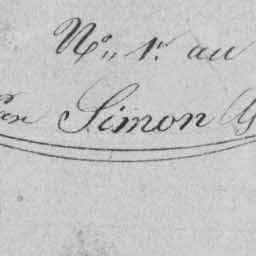 No. 1. au
Simon